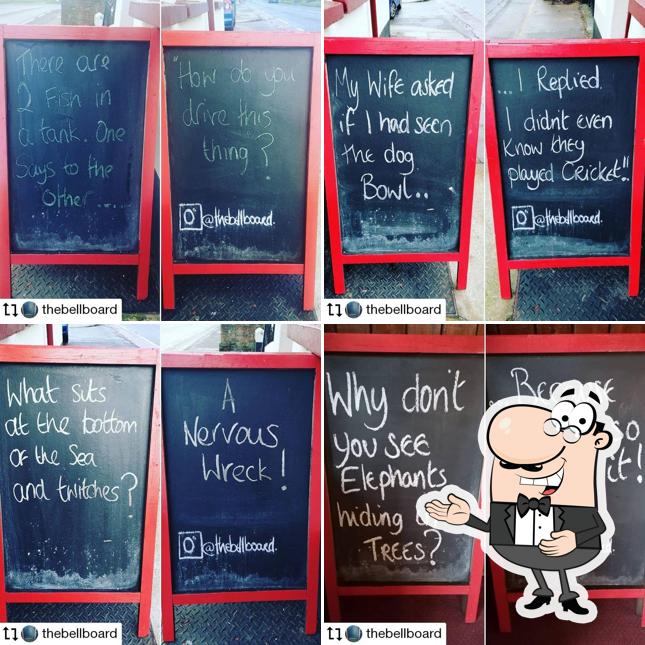 There are
2 Fish in
a tank. One
Says to the
Other ....
"How do you
drive this
thing?
@thebellboard.
thebellboard
My Wife asked
if I had seen
the dog
Bowl..
...I Replied.
I didnt even
Know they
played Cricket"!.
@thebellboard.
thebellboard
What sits
at the bottom
of the Sea
and twitches?
A
Nervous
Wreck!
@thebellboard.
thebellboard
Why don't
you see
Elephants
hiding
TREES?
Because
so
it!
thebellboard